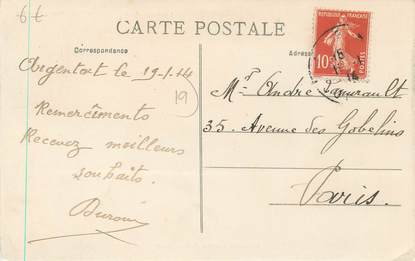 6€
CARTE POSTALE
Correspondance
Adresse
RÉPUBLIQUE FRANÇAISE
10
POSTES
Argentont le 19-1-14
19
Remerciments
Recevez meilleurs
souhaits.
Mr André
35. Avenue des Gobelins
Paris.